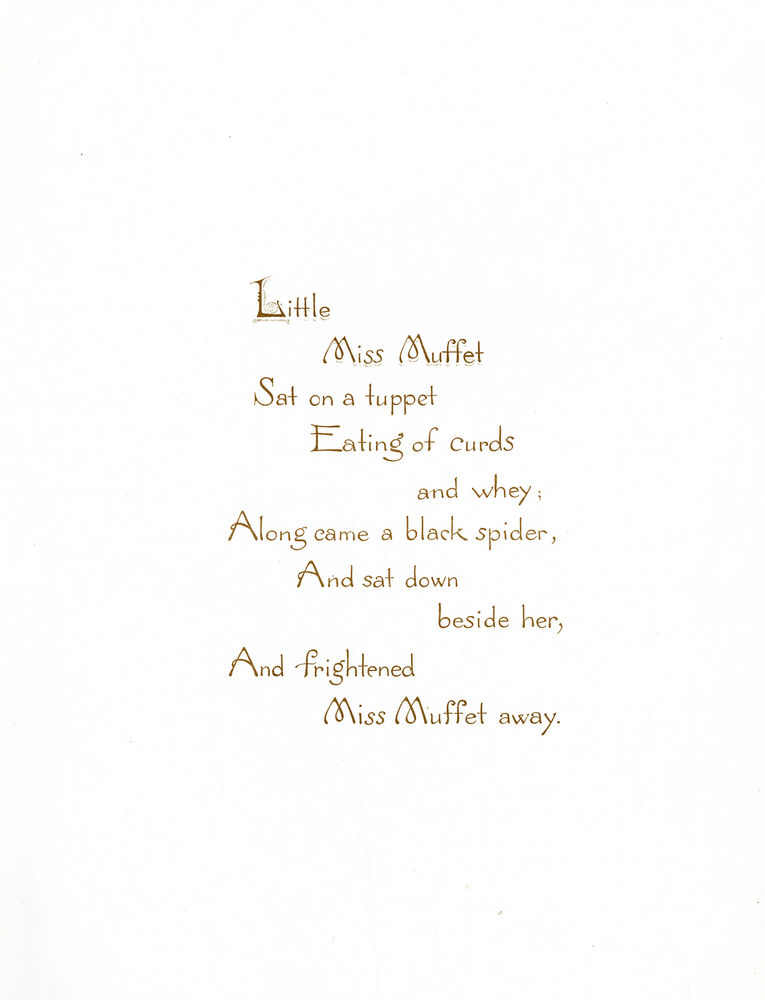 Little
Miss Muffet
Sat on a tuppet
Eating of curds
and whey;
Along came a black spider,
And sat down
beside her,
And frightened
Miss Muffet away.